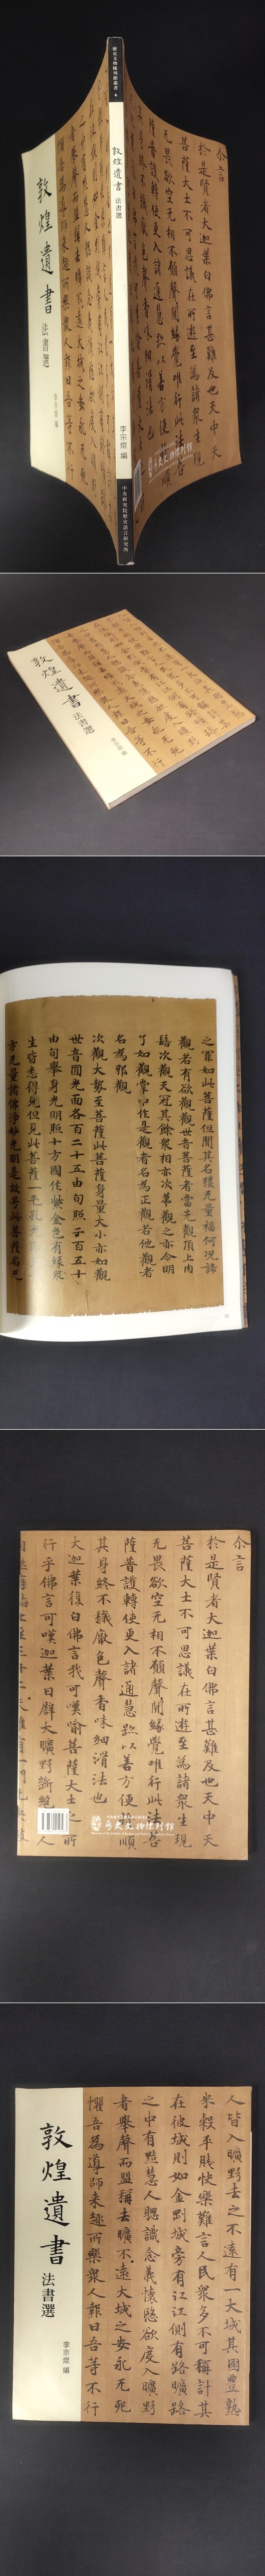 歷史文物陳列館叢書
敦煌遺書 法書選
李宗焜 編
中央研究院歷史語言研究所
敦煌遺書
法書選
李宗焜 編
仚言
於是賢者大迦葉白佛言甚難及也天中天
菩薩大士不可思議在所遊至為諸眾生現
无畏欲空无相不願聲聞緣覺唯行此法
歷史文物陳列館
敦煌遺書
法書選
之星如此菩薩但聞其名獲无量福何況諦
觀若有欲觀觀世音菩薩者當先觀頂上肉
髻次觀天冠其餘眾相亦次第觀之亦令明
了如觀掌中作是觀者名為正觀若他觀者
名為邪觀
次觀大勢至菩薩此菩薩身量大小亦如觀
世音圓光面各百二十五由旬照二百五十
由旬舉身光明照十方國作紫金色有緣眾
生皆悉得見但見此菩薩一毛孔光
於是賢者大迦葉白佛言甚難及也天中天
菩薩大士不可思議在所遊至為諸眾生現
无畏欲空无相不願聲聞緣覺唯行此法
薩普護轉使更入諸通慧跡以善方便順
其身終不穢厭色聲香味細滑法也
大迦葉復白佛言我可嘆喻菩薩大士之所
行乎佛言可嘆迦葉曰辟大曠野斷絕人
歷史文物陳列館
人皆入曠野去之不遠有一大城其國豐熟
米穀平賤快樂難言人民眾多不可稱計其
在彼城則如金剛城旁有江江側有路曠路
之中有黠慧人聰識念義懷愍欲度入曠野
者舉聲而盟稱去曠不遠大城之安永无死
懼吾為導師來趣所樂眾人報曰吾等不行
敦煌遺書
法書選
李宗焜 編